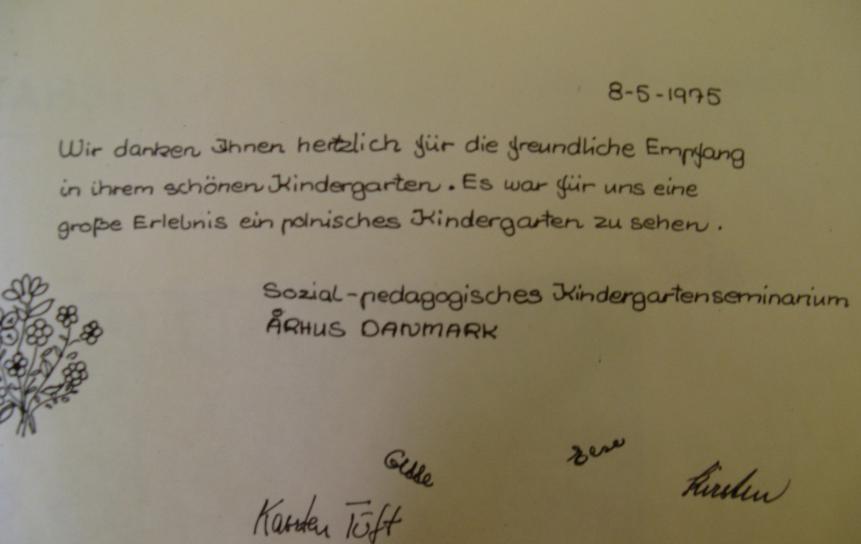 8-5-1975
Wir danken Ihnen hertzlich für die freundliche Empfang
in ihrem schönen Kindergarten. Es war für uns eine
große Erlebnis ein polnisches Kindergarten zu sehen.
Sozial-pedagogisches Kindergartenseminarium
ÅRHUS DANMARK
Kirsten
Karsten Tüft